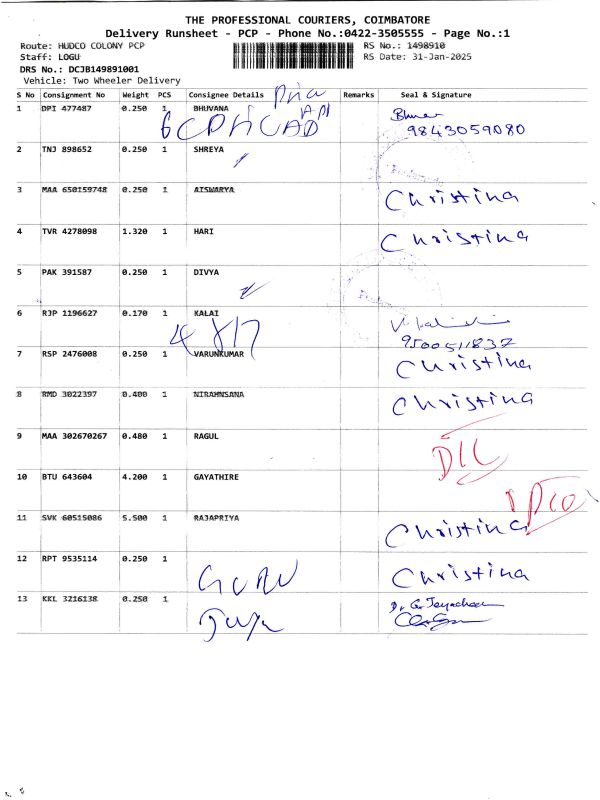 THE PROFESSIONAL COURIERS, COIMBATORE
Delivery Runsheet - PCP - Phone No.:0422-3505555 - Page No.:1
Route: HUDCO COLONY PCP RS No.: 1498910
Staff: LOGU RS Date: 31-Jan-2025
DRS No.: DCJB149891001
Vehicle: Two Wheeler Delivery
S No Consignment No Weight PCS Consignee Details Remarks Seal & Signature
1 DPI 477487 0.250 1 BHUVANA
9843059080
2 TNJ 898652 0.250 1 SHREYA
3 MAA 650159748 0.250 1 AISWARYA Christina
4 TVR 4278098 1.320 1 HARI Christina
5 PAK 391587 0.250 1 DIVYA
6 RJP 1196627 0.170 1 KALAI
7 RSP 2476008 0.250 1 VARUNKUMAR Christina
8 RMD 3022397 0.400 1 NIRAHNSANA Christina
9 MAA 302670267 0.480 1 RAGUL
10 BTU 643604 4.200 1 GAYATHIRE
11 SVK 60515086 5.500 1 RAJAPRIYA Christina
12 RPT 9535114 0.250 1 Christina
13 KKL 3216138 0.250 1